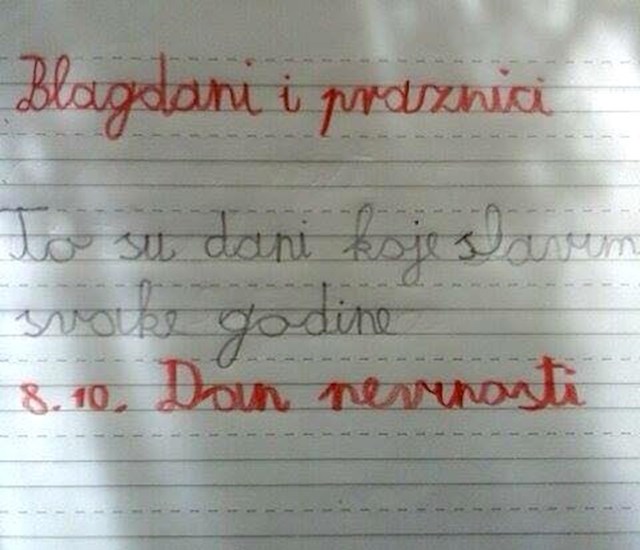 Blagdani i praznici
To su dani koje slavim
svake godine
8.10. Dan nevinosti